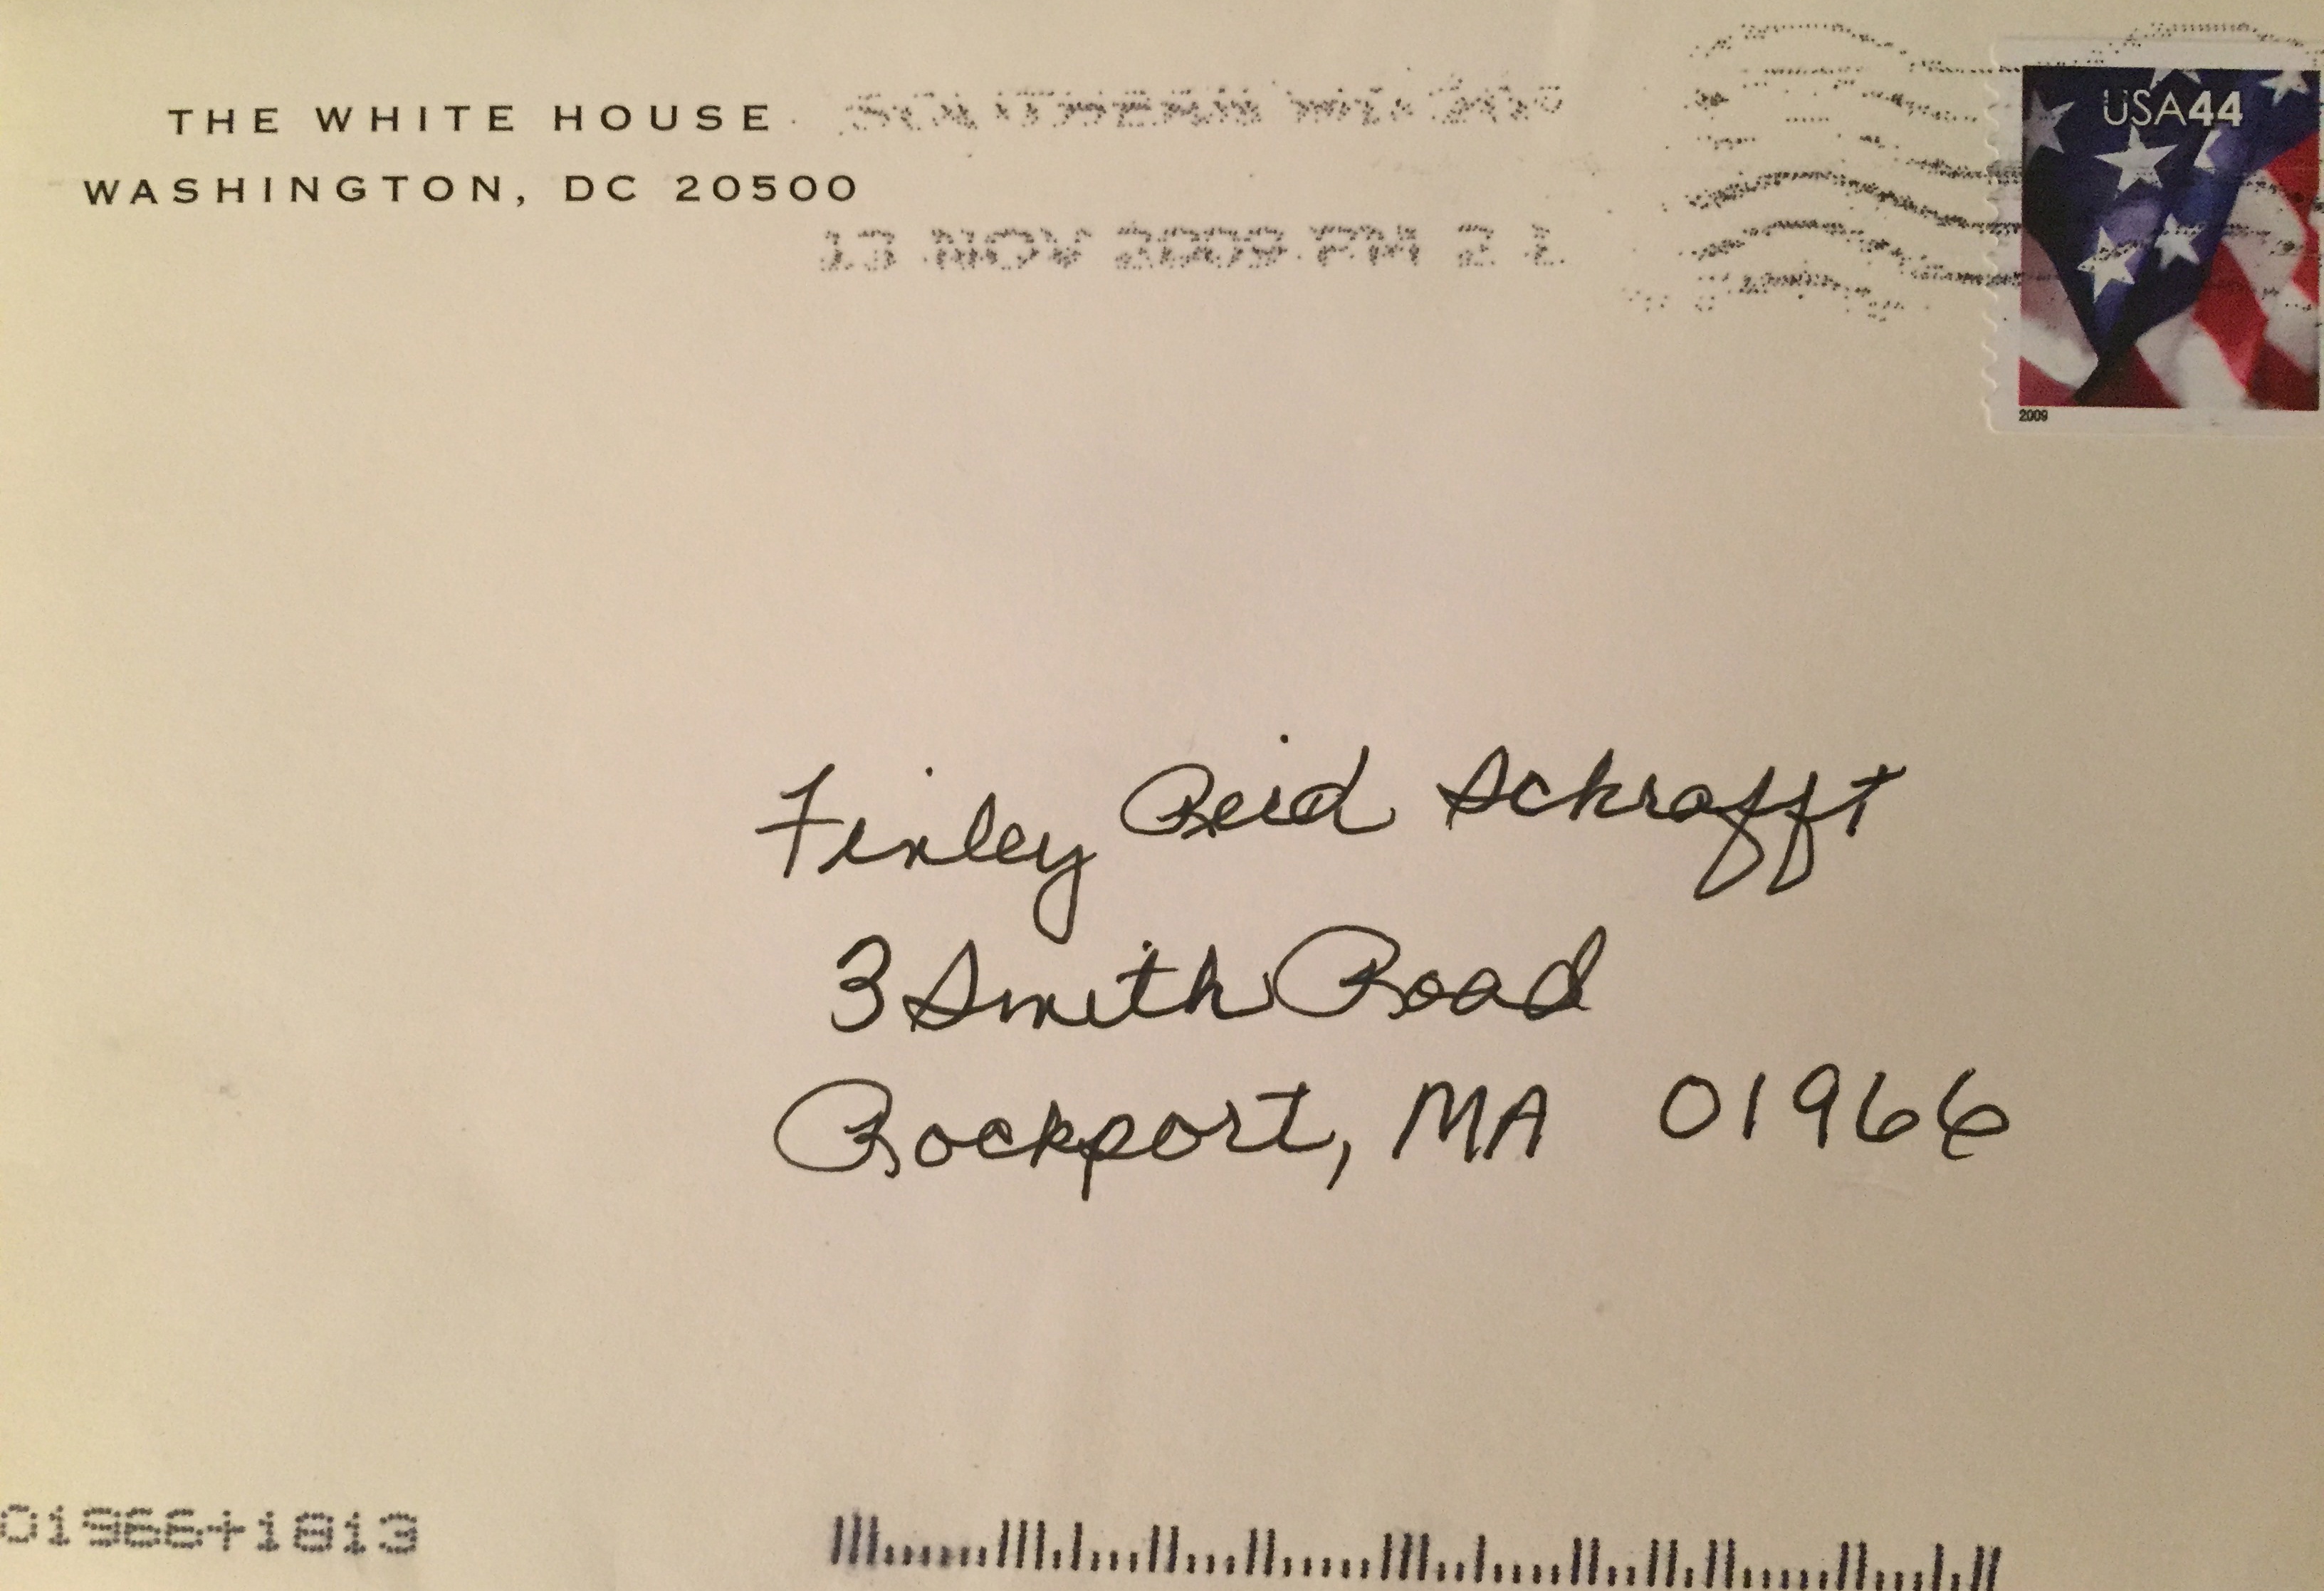 THE WHITE HOUSE
WASHINGTON, DC 20500
SOUTHERN MD 207
13 NOV 2009 PM 2 L
USA44
2009
Finley Reid Schrafft
3 Smith Road
Rockport, MA 01966
01966+1813